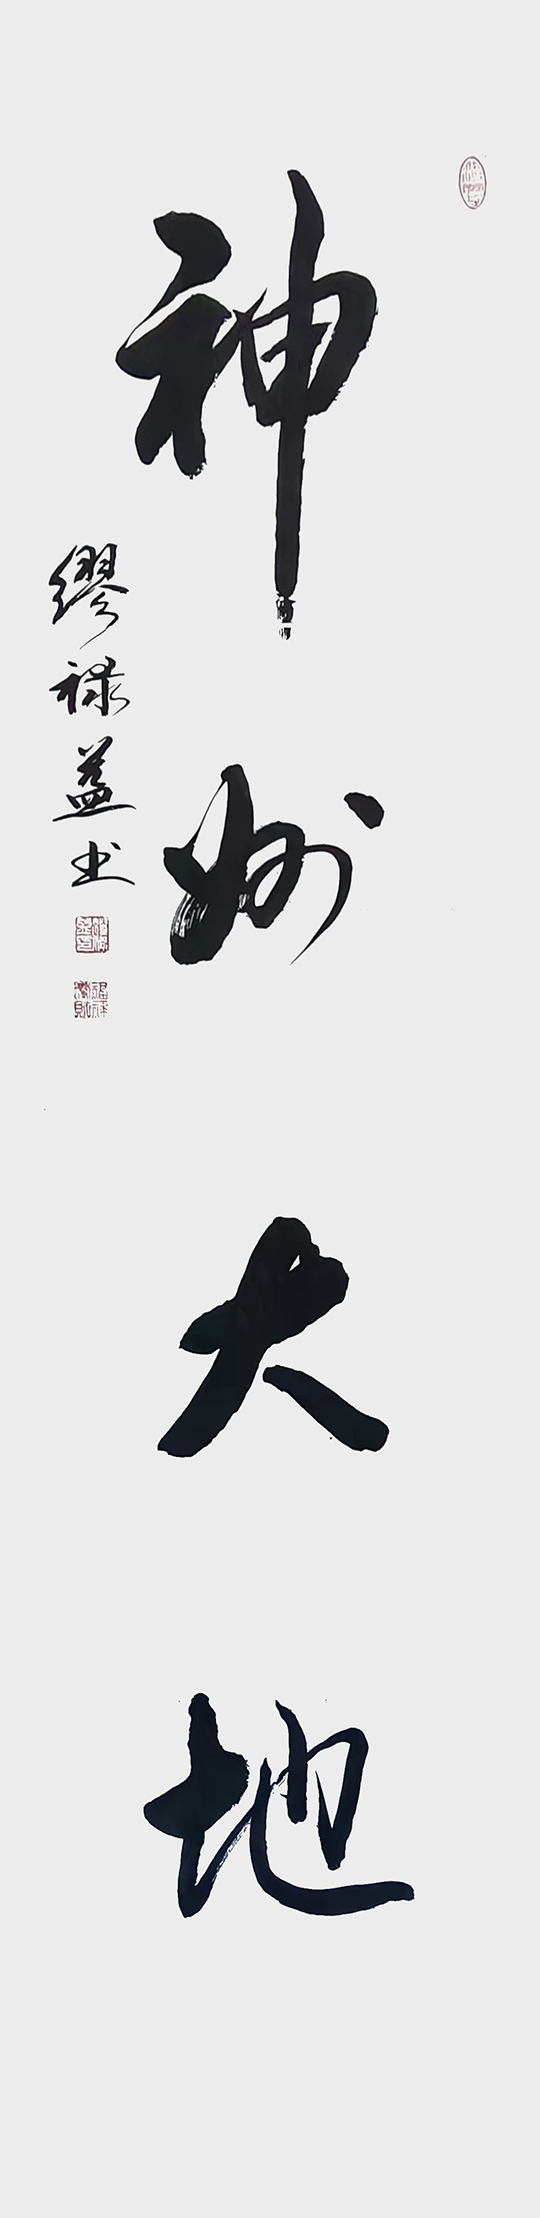 神州大地
缪禄盖书